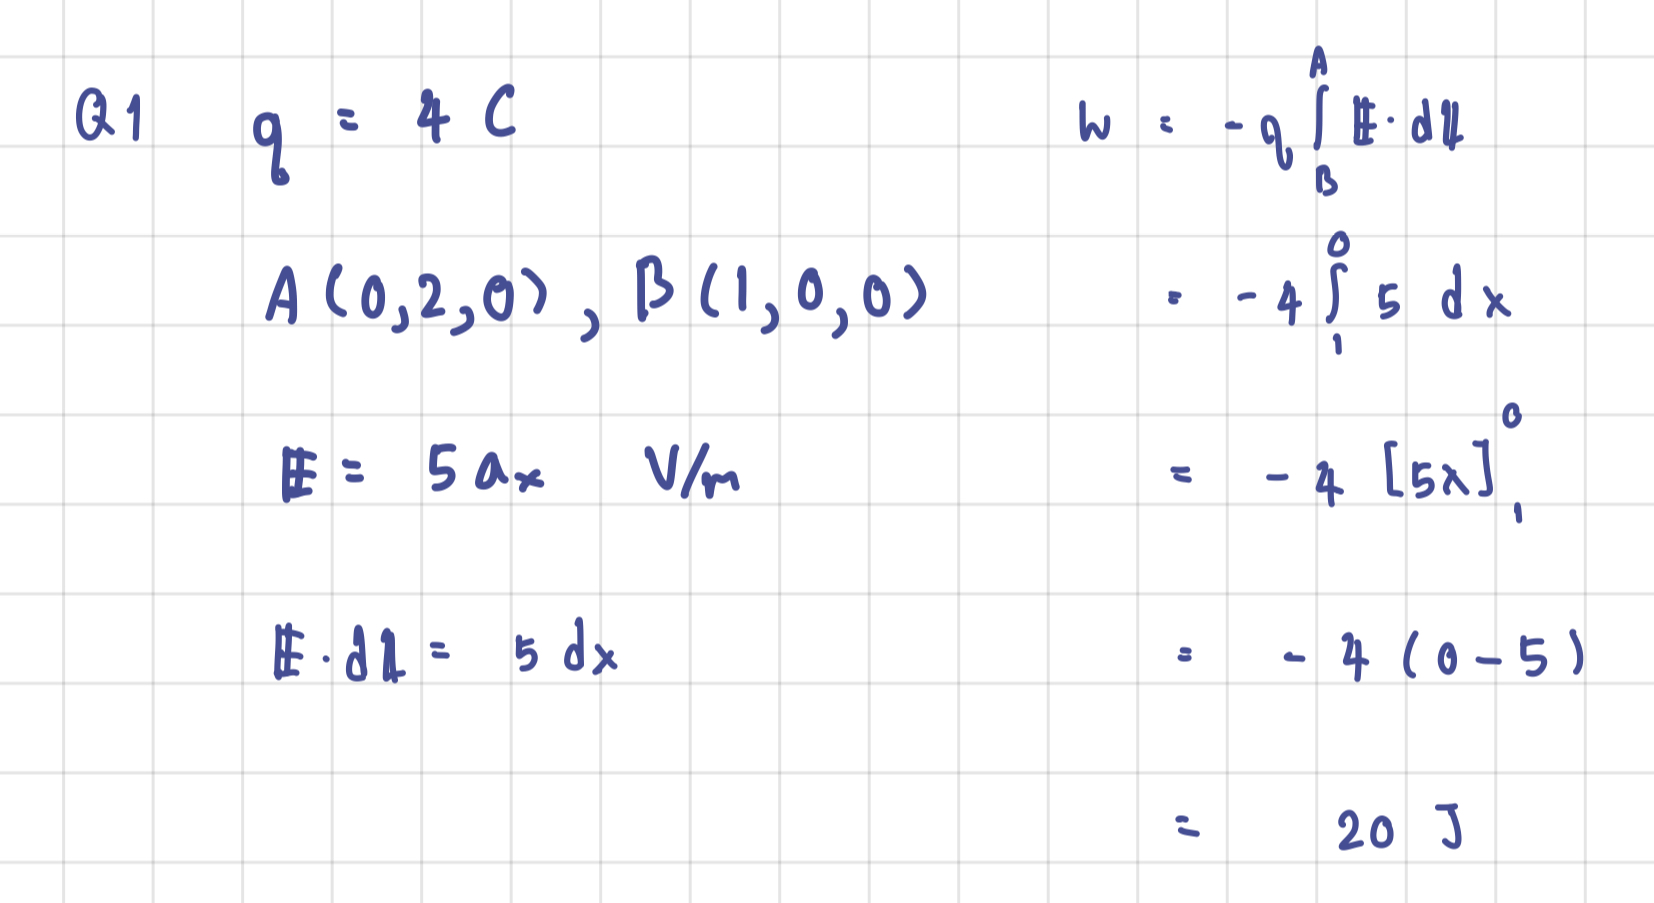 Q1 q = 4 C
A (0,2,0) , B (1,0,0)
E = 5 ax V/m
E · dl = 5 dx
W = -q ∫_B^A E · dl
= -4 ∫_1^0 5 dx
= -4 [5x]_1^0
= -4 (0-5)
= 20 J